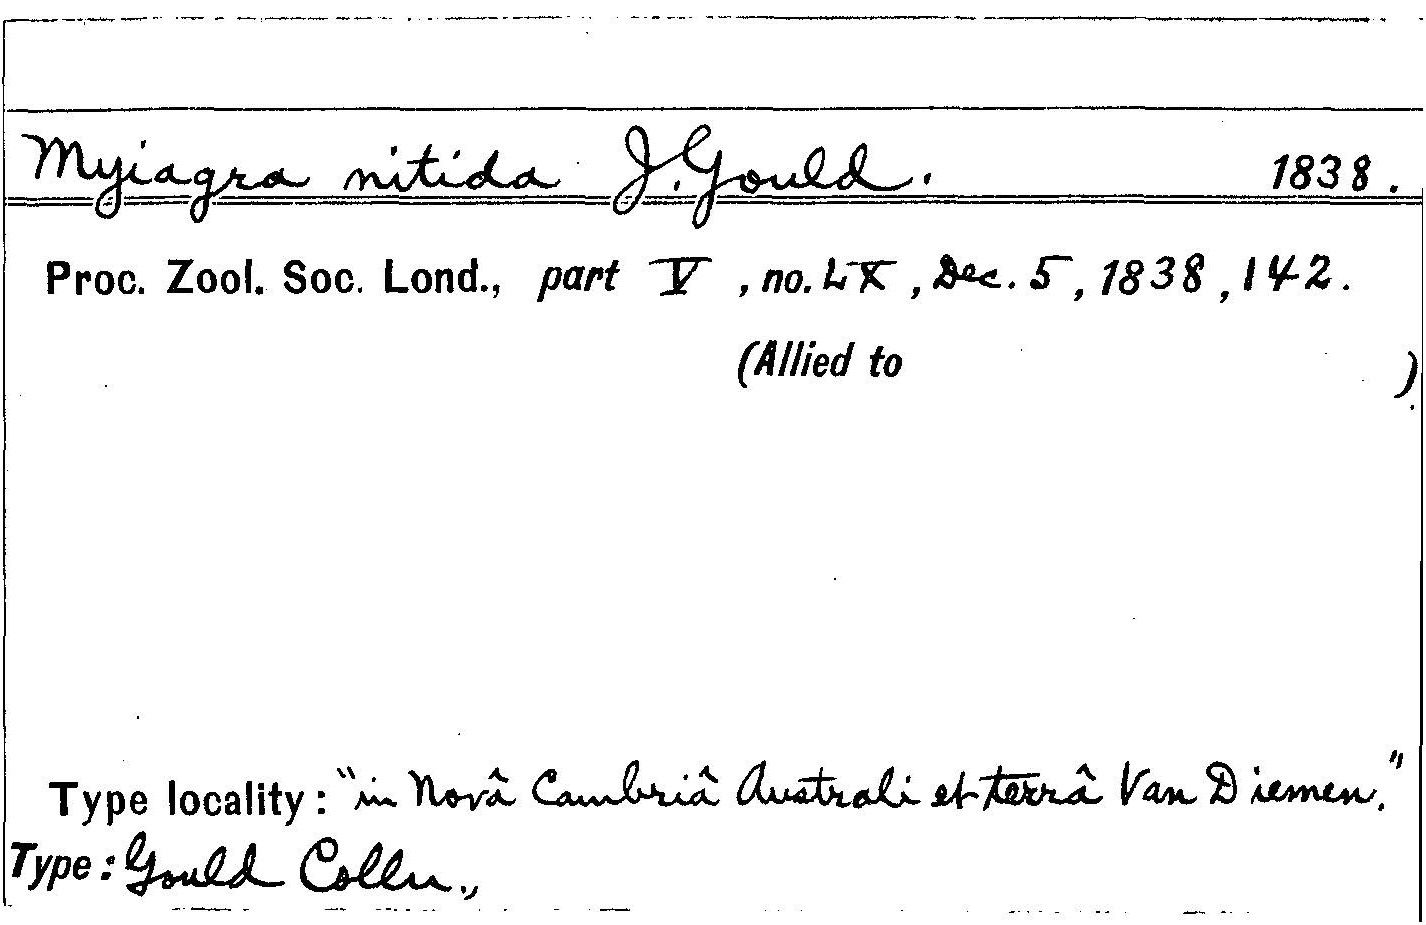 Myiagra nitida J. Gould. 1838.
Proc. Zool. Soc. Lond., part V, no. LX, Dec. 5, 1838, 142.
(Allied to )
Type locality: "in Novâ Cambriâ Australi et terrâ Van Diemen."
Type: Gould Colln.,